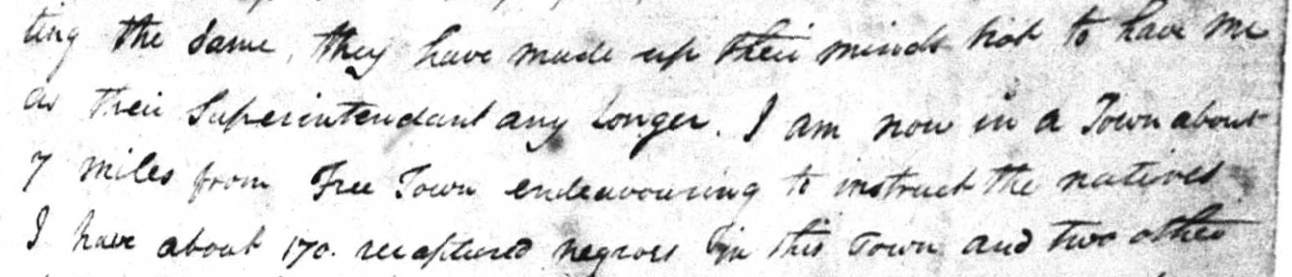 ting the Same, they have made up their minds not to have me
as their Superintendant any longer. I am now in a Town about
7 miles from Free Town endeavouring to instruct the natives
I have about 170. recaptured negroes in this Town and two other